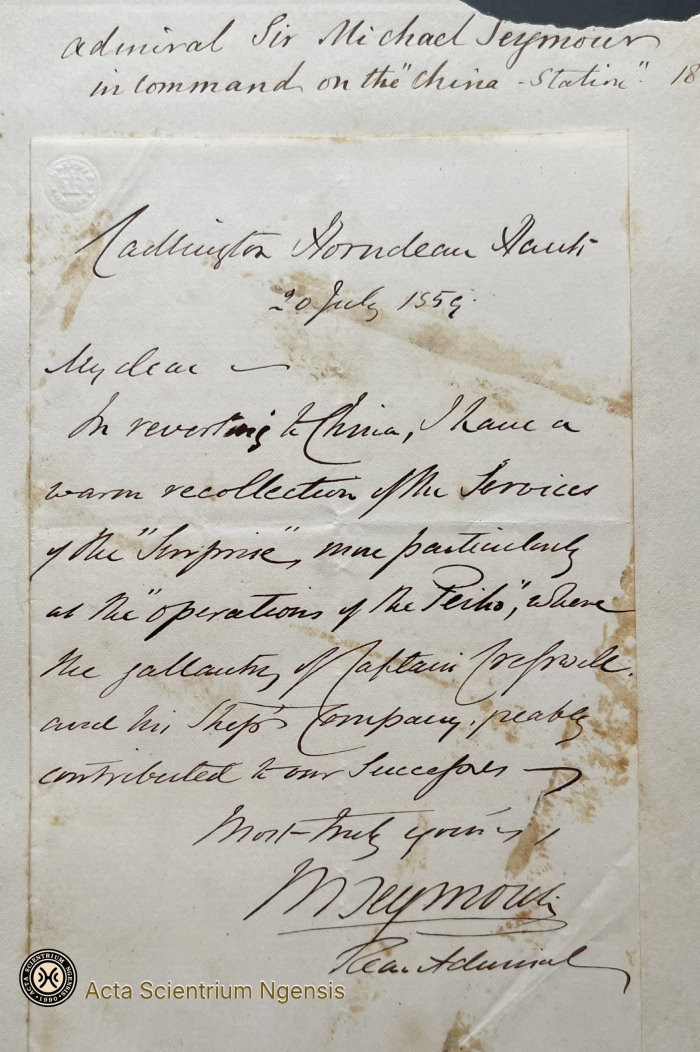 Admiral Sir Michael Seymour
in command on the "China-Station". 18
Cadlington Horndean Hants
20 July 1859.
My dear —
In reverting to China, I have a
warm recollection of the Services
of the "Surprise", more particularly
at the "operations of the Peiho", where
the gallantry of Captain Cresswell.
and his Ship's Company, greatly
contributed to our Successes —
Most truly yours,
M Seymour
Rear Admiral
ACTA SCIENTRIUM NGENSIS
•1990•
Acta Scientrium Ngensis